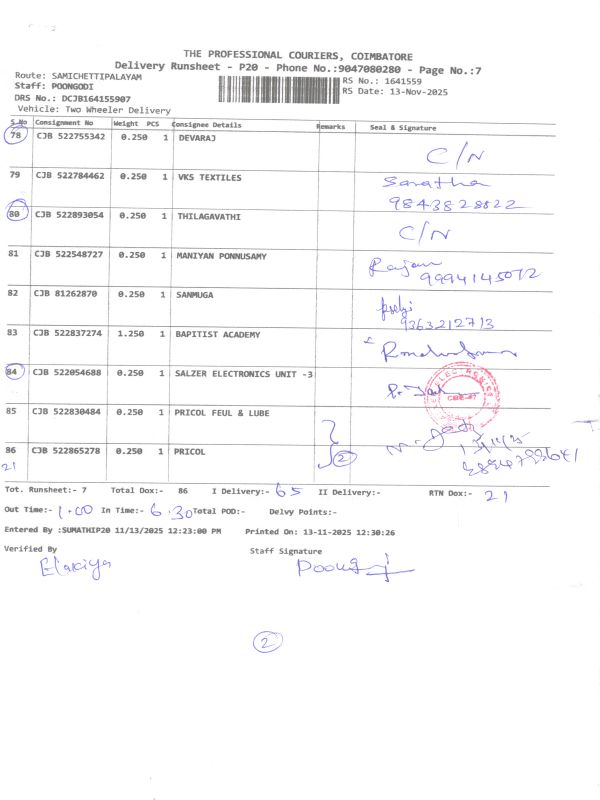 THE PROFESSIONAL COURIERS, COIMBATORE
Delivery Runsheet - P20 - Phone No.:9047080280 - Page No.:7
Route: SAMICHETTIPALAYAM
RS No.: 1641559
Staff: POONGODI
RS Date: 13-Nov-2025
DRS No.: DCJB164155907
Vehicle: Two Wheeler Delivery
S.No Consignment No Weight PCS Consignee Details Remarks Seal & Signature
78 CJB 522755342 0.250 1 DEVARAJ C/N
79 CJB 522784462 0.250 1 VKS TEXTILES Saratha
9843828822
80 CJB 522893054 0.250 1 THILAGAVATHI C/N
81 CJB 522548727 0.250 1 MANIYAN PONNUSAMY Rajam
9994145072
82 CJB 81262870 0.250 1 SANMUGA
9363212713
83 CJB 522837274 1.250 1 BAPITIST ACADEMY
84 CJB 522054688 0.250 1 SALZER ELECTRONICS UNIT -3
85 CJB 522830484 0.250 1 PRICOL FEUL & LUBE
86 CJB 522865278 0.250 1 PRICOL 2
21
Tot. Runsheet:- 7 Total Dox:- 86 I Delivery:- 65 II Delivery:- RTN Dox:- 21
Out Time:- 1.00 In Time:- 6.30 Total POD:- Delvy Points:-
Entered By :SUMATHIP20 11/13/2025 12:23:00 PM Printed On: 13-11-2025 12:30:26
Verified By Staff Signature
Elakiya
2